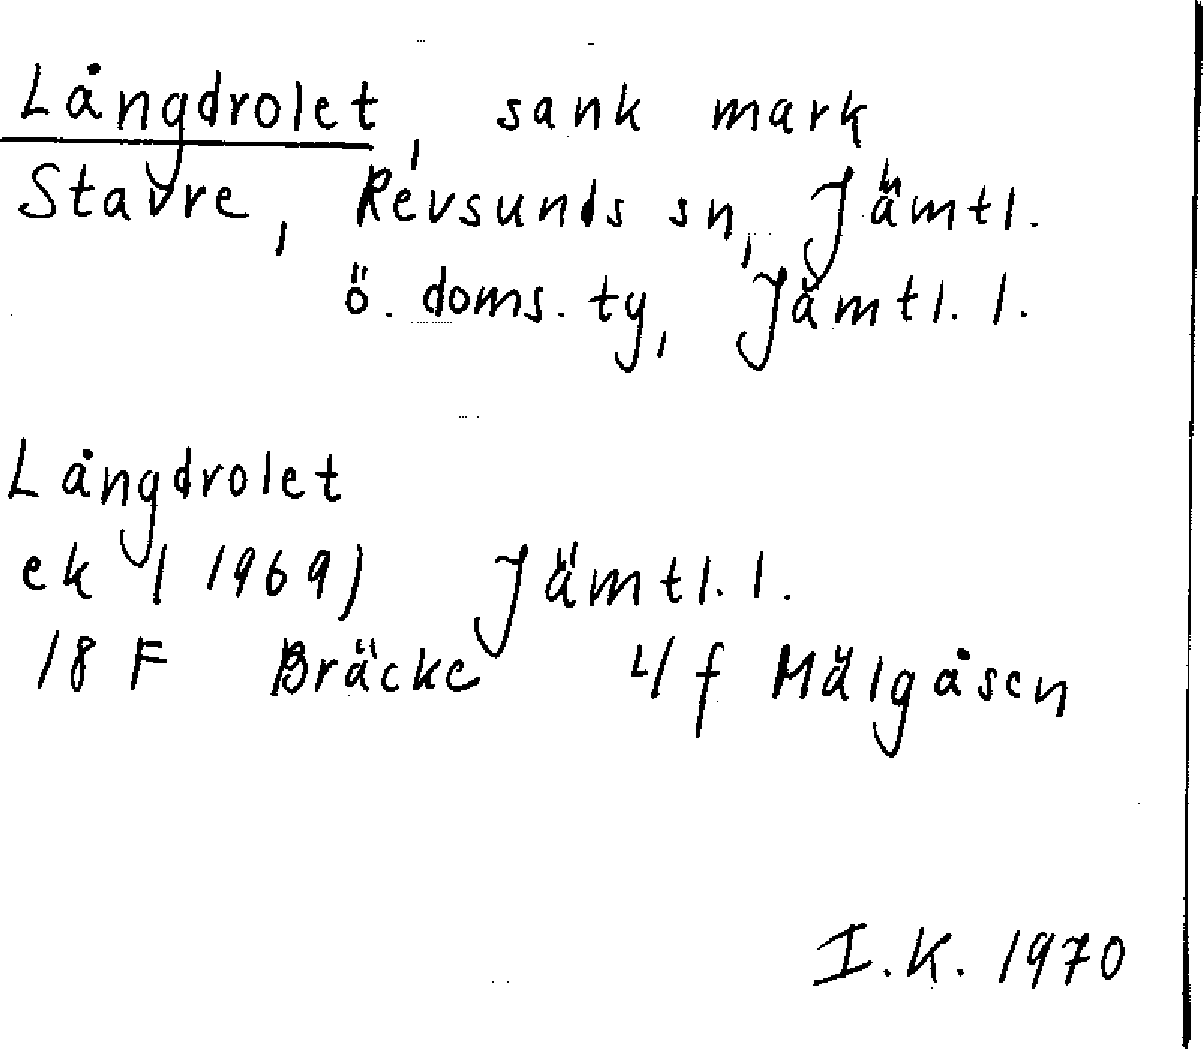 Långdrolet, sank mark
Stavre, Revsunds sn, Jämtl.
ö. doms. ty, Jämtl. l.
Långdrolet
ek (1969) Jämtl. l.
18 F Bräcke 4 f Mälgåsen
I.K. 1970